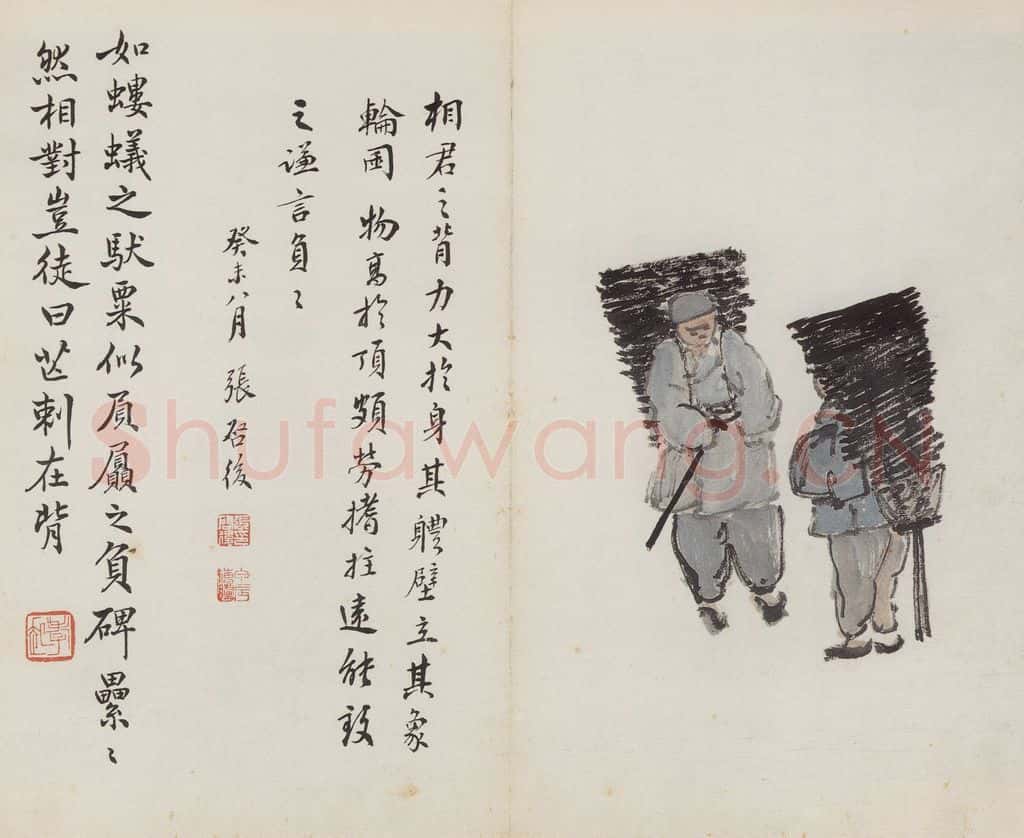 相君之背力大於身其軆壁立其象
輪囷物高於頂頗勞搘拄遠能致
之謙言負〻
癸未八月 張启後
如螻蟻之馱粟似屓贔之負碑纍〻
然相對豈徒曰芒刺在背
Shufawang.CN